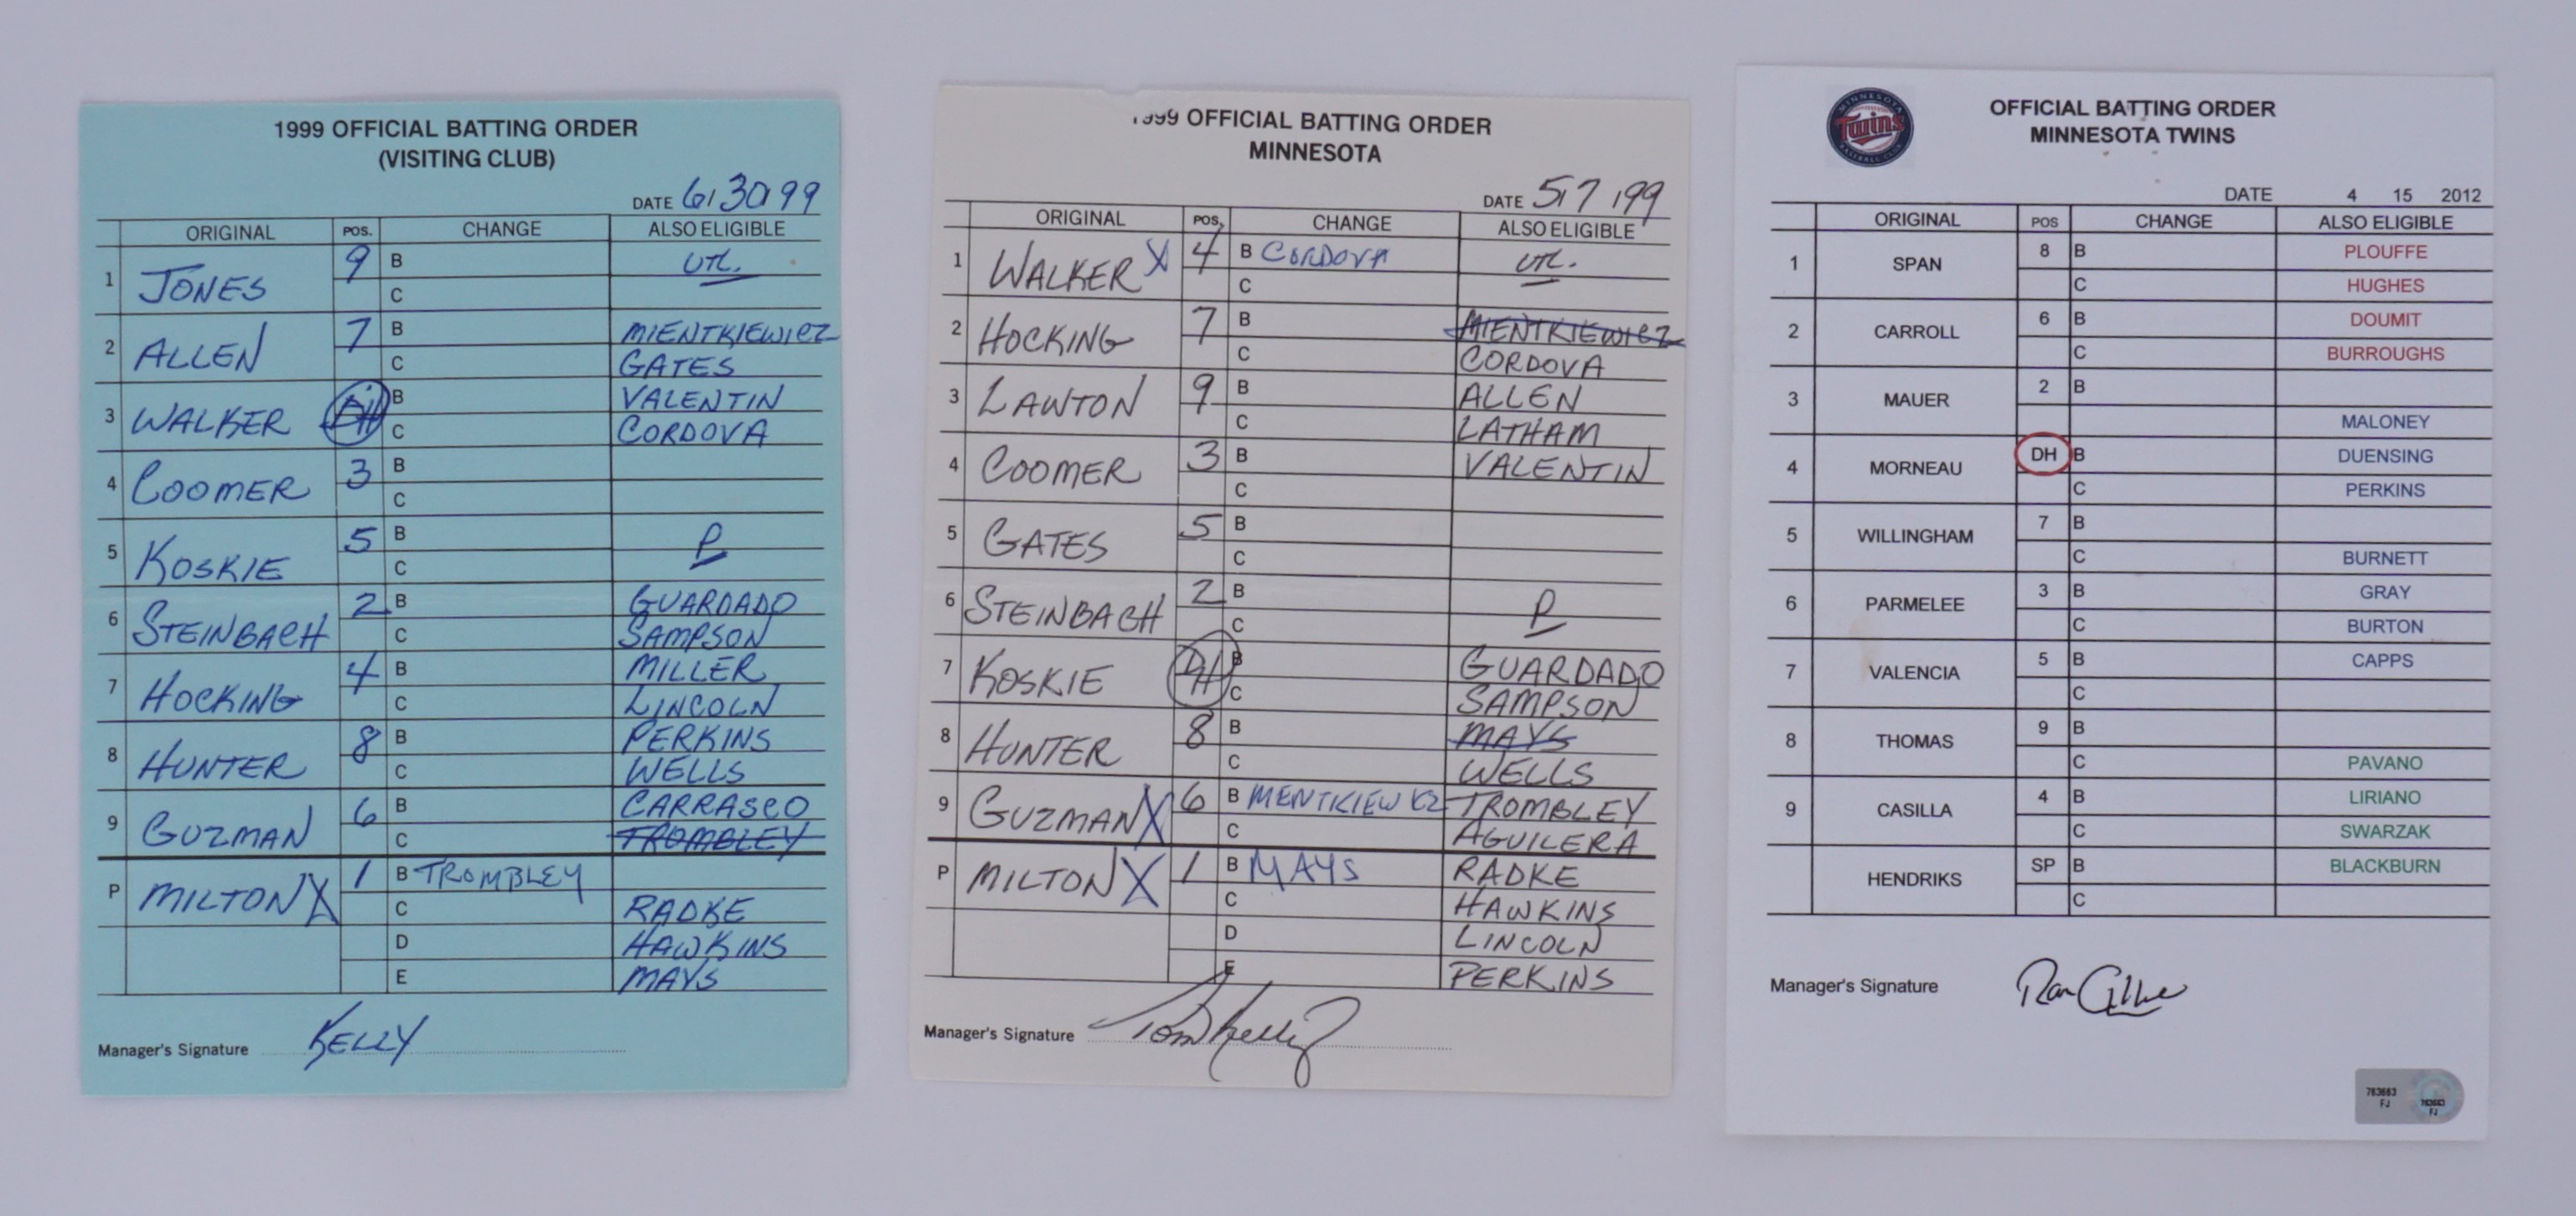 1999 OFFICIAL BATTING ORDER
(VISITING CLUB)
DATE 6/30/99
ORIGINAL POS. CHANGE ALSO ELIGIBLE
1 JONES 9 B UTL.
C
2 ALLEN 7 B MIENTKIEWICZ
C GATES
3 WALKER DH B VALENTIN
C CORDOVA
4 COOMER 3 B
C
5 KOSKIE 5 B P
C
6 STEINBACH 2 B GUARDADO
C SAMPSON
7 HOCKING 4 B MILLER
C LINCOLN
8 HUNTER 8 B PERKINS
C WELLS
9 GUZMAN 6 B CARRASCO
C TROMBLEY
P MILTON X 1 B TROMBLEY
C RADKE
D HAWKINS
E MAYS
Manager's Signature KELLY
1999 OFFICIAL BATTING ORDER
MINNESOTA
DATE 5/7/99
ORIGINAL POS. CHANGE ALSO ELIGIBLE
1 WALKER X 4 B CORDOVA UTL.
C
2 HOCKING 7 B MIENTKIEWICZ
C CORDOVA
3 LAWTON 9 B ALLEN
C LATHAM
4 COOMER 3 B VALENTIN
C
5 GATES 5 B
C
6 STEINBACH 2 B P
C
7 KOSKIE DH B GUARDADO
C SAMPSON
8 HUNTER 8 B MAYS
C WELLS
9 GUZMAN X 6 B MENTKIEWICZ TROMBLEY
C AGUILERA
P MILTON X 1 B MAYS RADKE
C HAWKINS
D LINCOLN
E PERKINS
Manager's Signature Tom Kelly
MINNESOTA
Twins
BASEBALL CLUB
OFFICIAL BATTING ORDER
MINNESOTA TWINS
DATE 4 15 2012
ORIGINAL POS CHANGE ALSO ELIGIBLE
1 SPAN 8 B PLOUFFE
C HUGHES
2 CARROLL 6 B DOUMIT
C BURROUGHS
3 MAUER 2 B
MALONEY
4 MORNEAU DH B DUENSING
C PERKINS
5 WILLINGHAM 7 B
C BURNETT
6 PARMELEE 3 B GRAY
C BURTON
7 VALENCIA 5 B CAPPS
C
8 THOMAS 9 B
C PAVANO
9 CASILLA 4 B LIRIANO
C SWARZAK
HENDRIKS SP B BLACKBURN
C
Manager's Signature
763663
FJ
763663
FJ